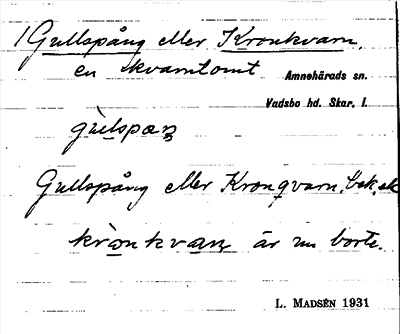 1 Gullspång eller Kronkvarn.
en kvarntomt
Amnehärads sn.
Vadsbo hd. Skar. l.
gùlspaŋ
Gullspång eller Kronqvarn. bek.
krònkvaɳ är nu borta.
L. MADSÉN 1931